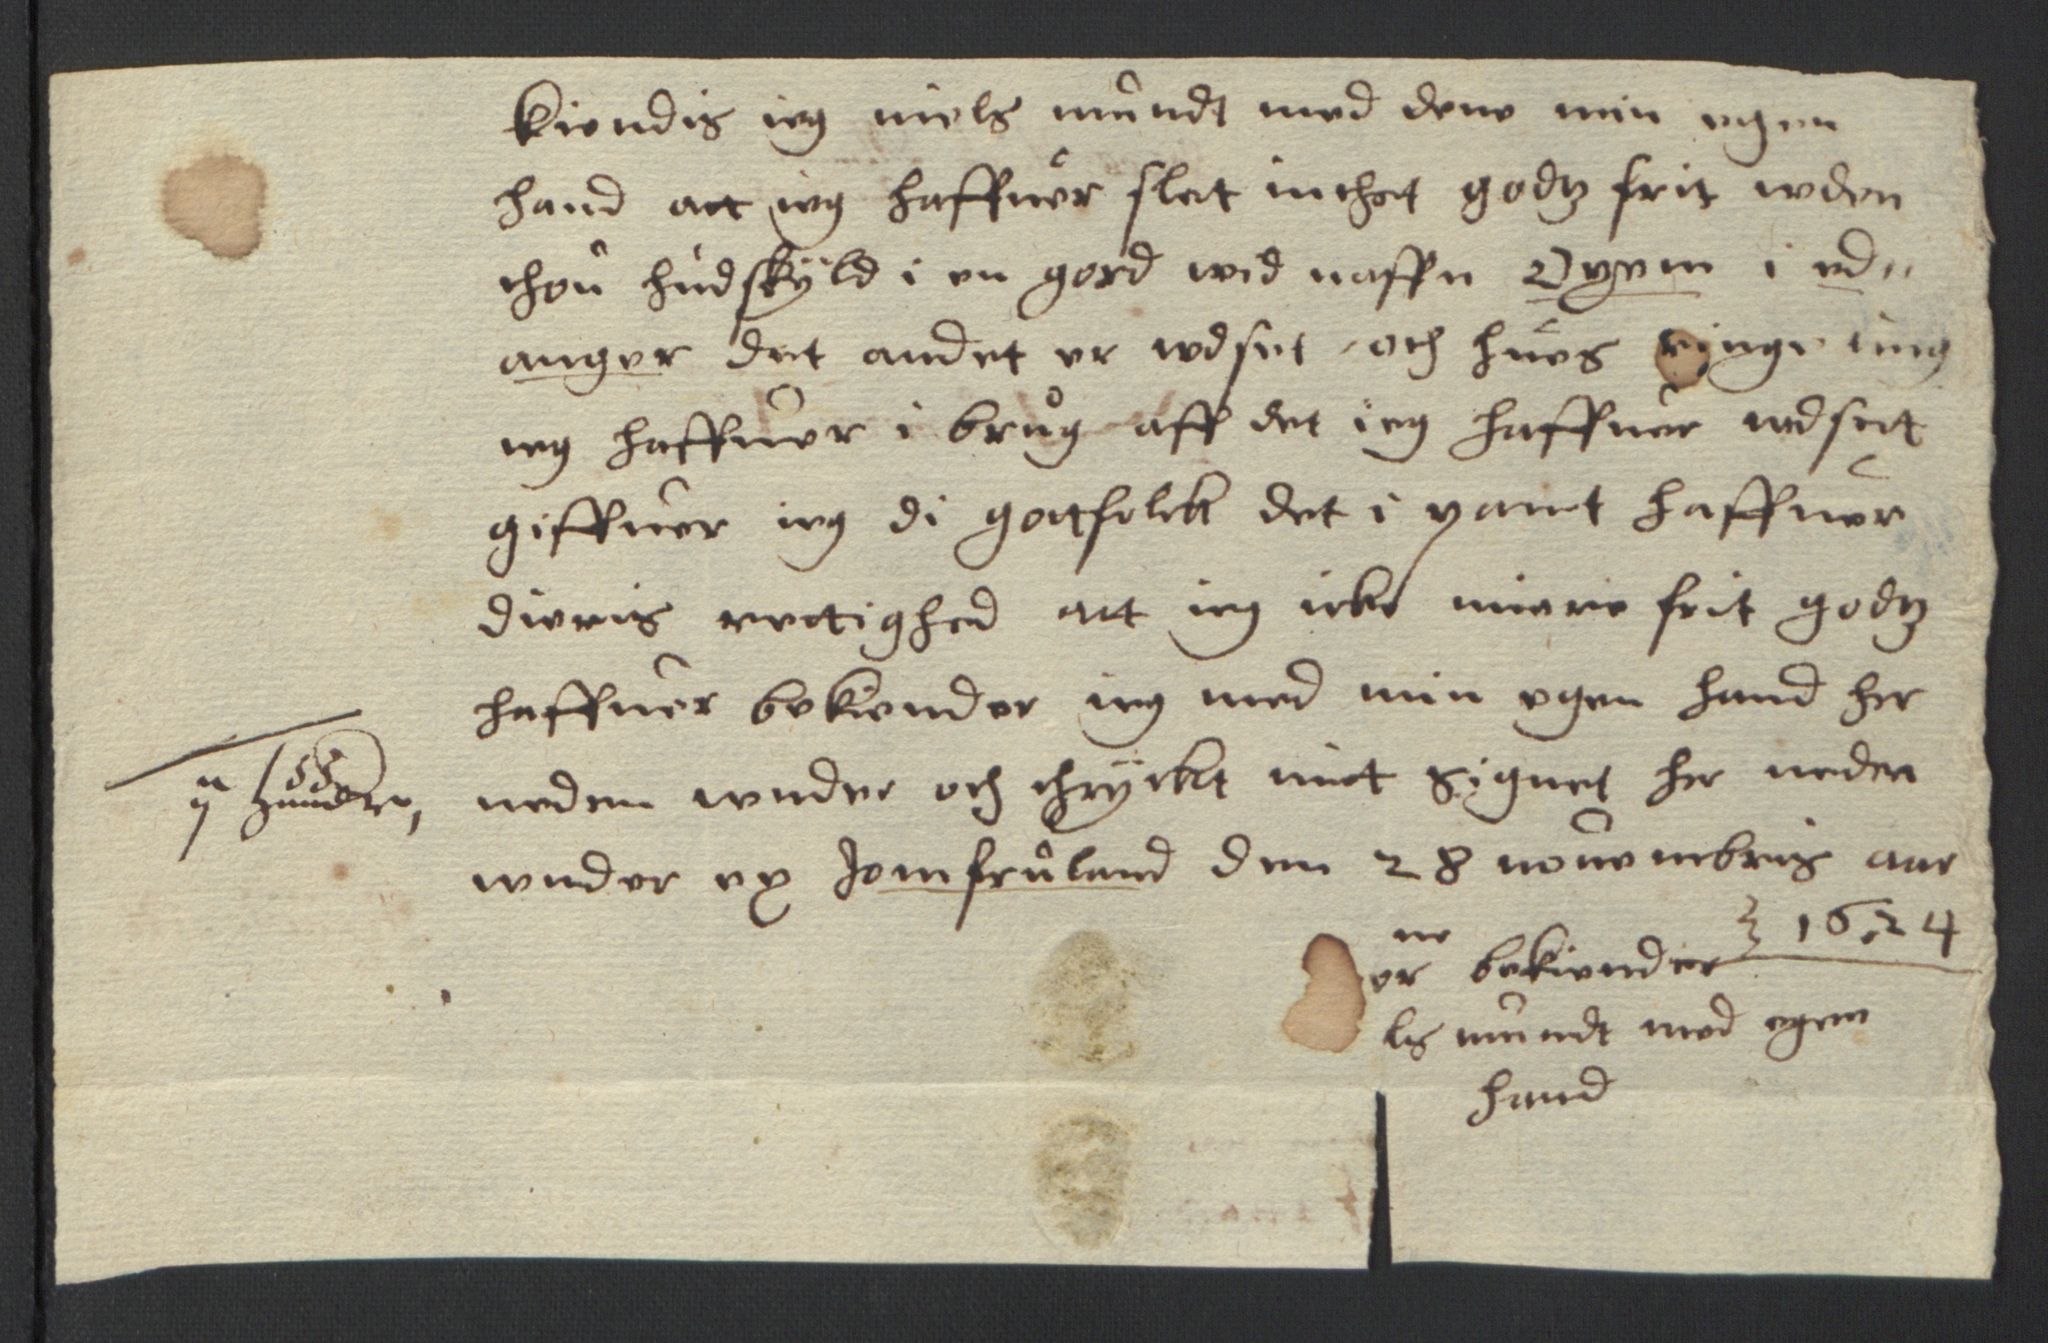 kiendis ieg niels mundt med dene min egen
hand att ieg haffuer slet inthet godtz frit uden
thou hudskyld i en gord wed naffn Oyem i ed
anger det andet er udset och hues ringe ting
ieg haffuer i brug aff det ieg haffuer udsett
giffuer ieg di gottfolck det i pannt haffuer
dieris rettighed att ieg icke miere frit godtz
haffuer bekiender ieg med min egen hand her
neden under och thryckt mit signet her neden
under ex Jomfruland den 28 nouembris aar
1624
ne
er bekiender
ls mundt med egen
hand